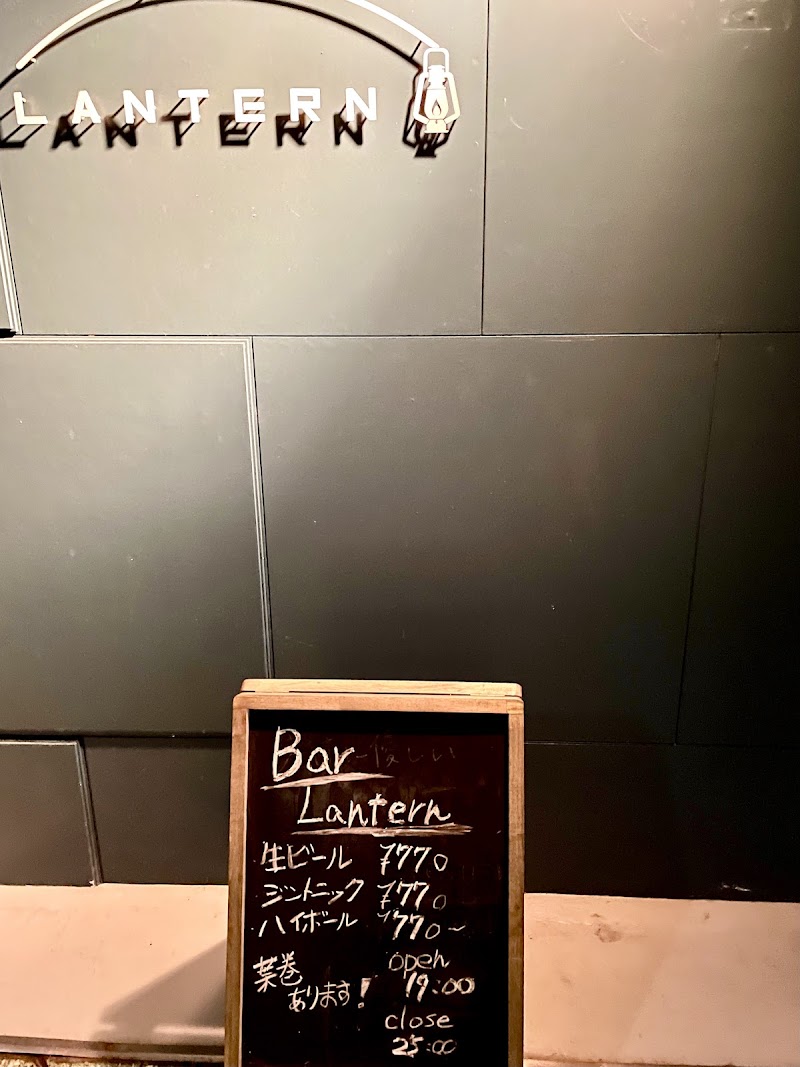 LANTERN
Bar
Lantern
生ビール ¥770
ジントニック ¥770
ハイボール ¥770~
葉巻
あります!
open
19:00
close
25:00